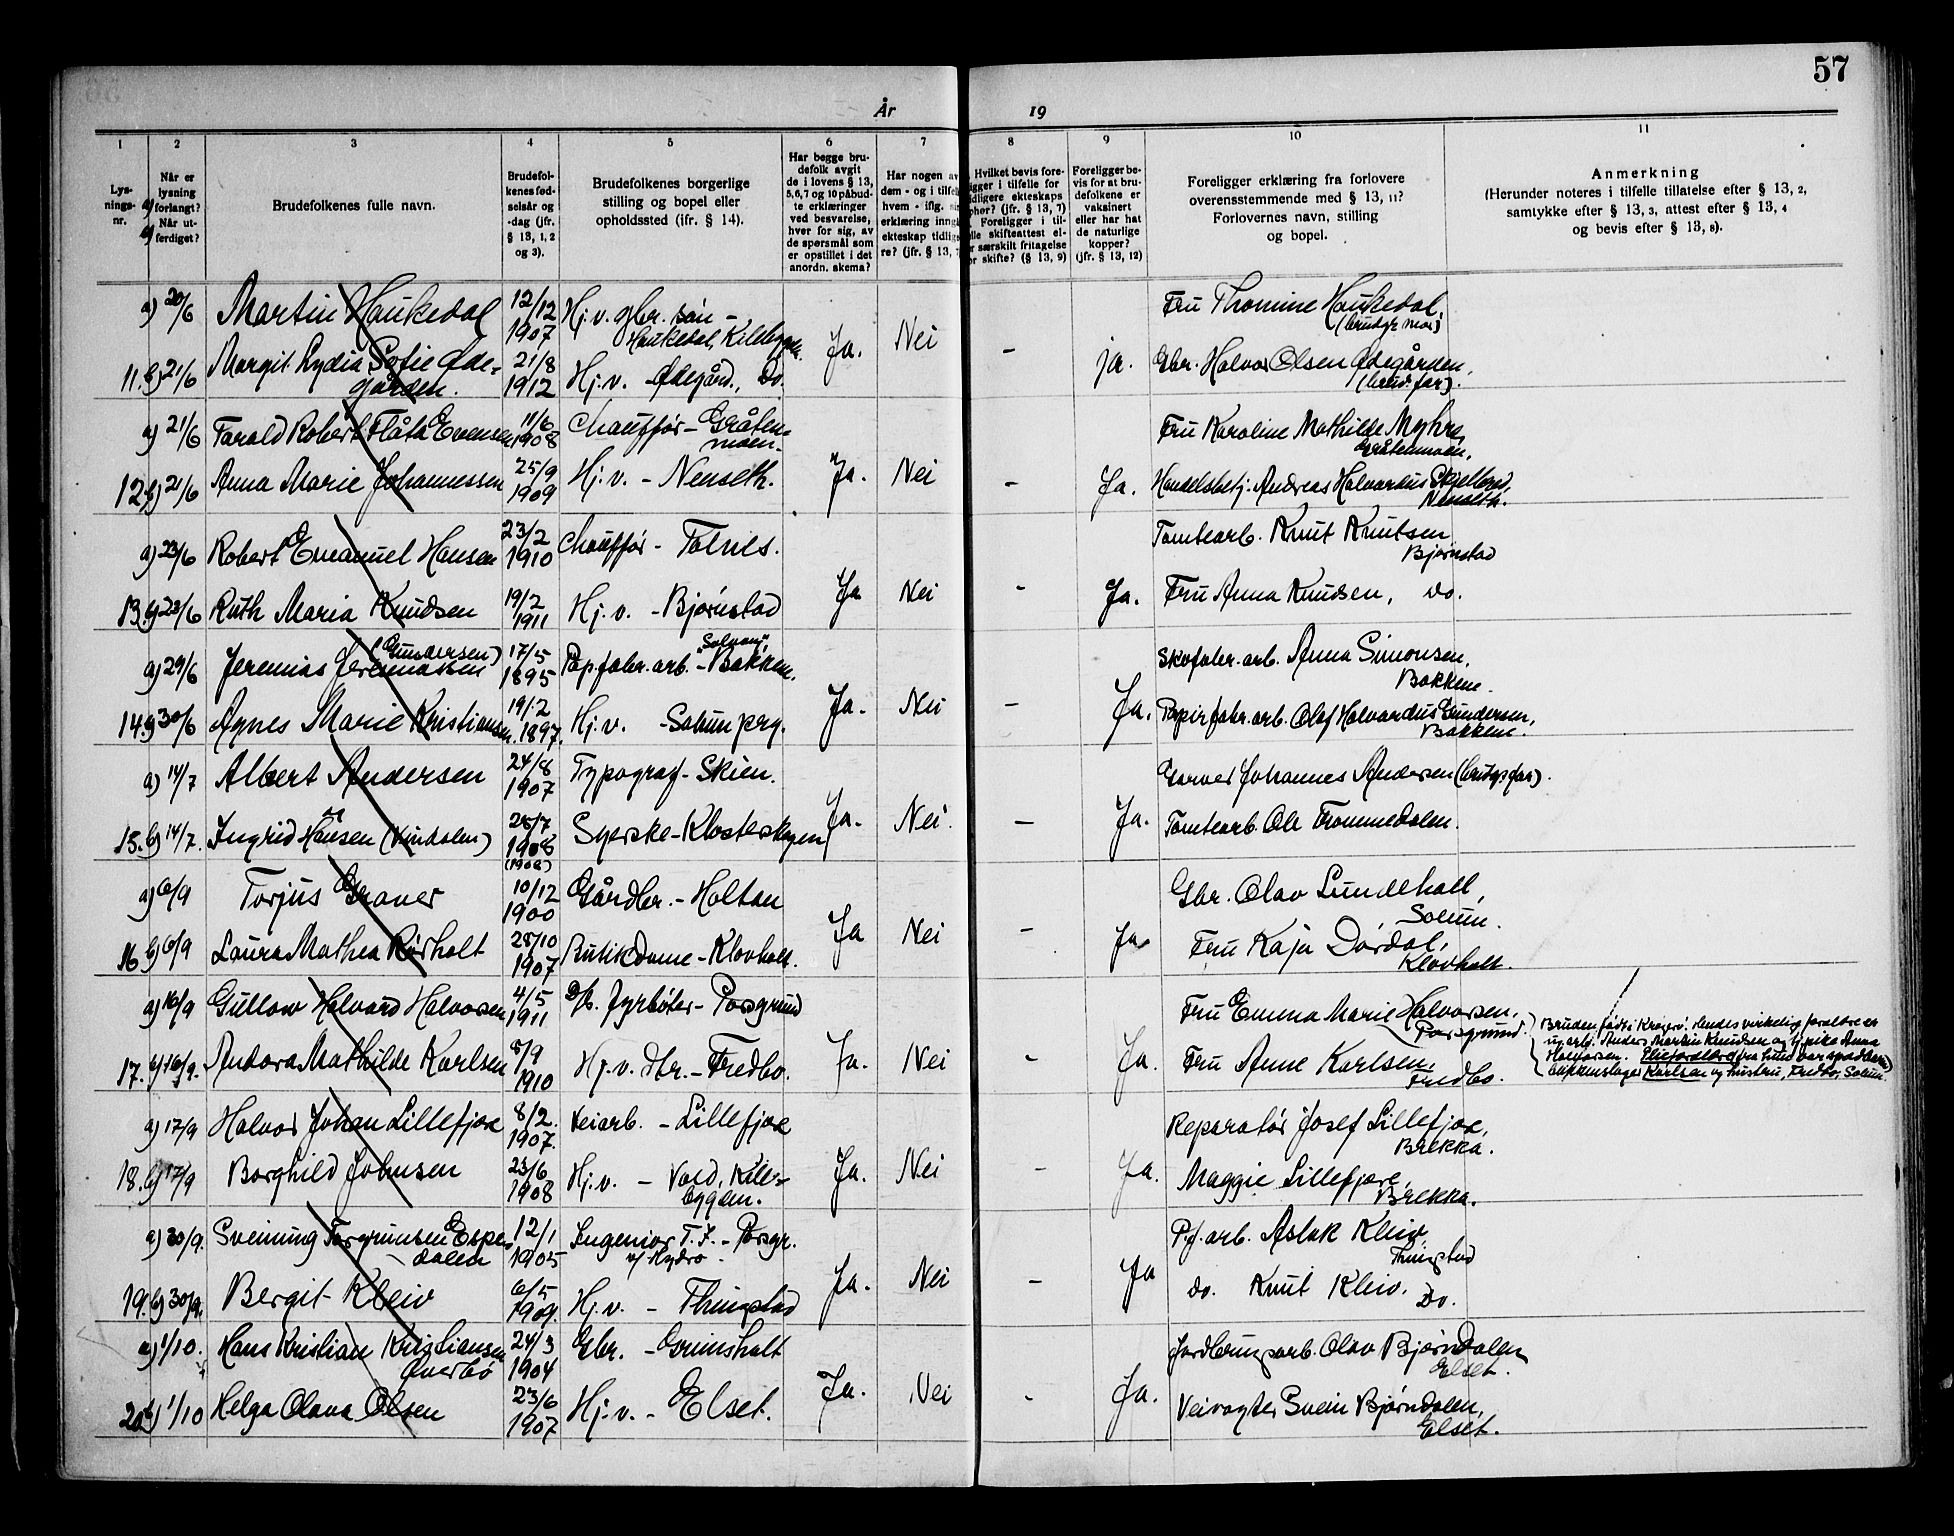 57
År 19
1 2 3 4 5 6 7 8 9 10 11
Lys-
nings-
nr.
Når er
lysning
forlangt?
Når ut-
ferdiget?
Brudefolkenes fulle navn.
Brudefol-
kenes fød-
selsår og
-dag (jfr.
§ 13, 1, 2
og 3).
Brudefolkenes borgerlige
stilling og bopel eller
opholdssted (ifr. § 14).
Har begge bru-
defolk avgit
de i lovens § 13,
5,6,7 og 10 påbud-
te erklæringer
ved besvarelse,
hver for sig, av
de spørsmål som
er opstillet i det
anordn. skema?
Har nogen av
dem - og i tilfel
hvem - iflg.
erklæring inng
ekteskap tidlig
re? (jfr. § 13,
Hvilket bevis fore-
gger i tilfelle for
idligere ekteskaps
phør? (jfr. § 13, 7)
Foreligger i til-
lle skifteattest el-
r særskilt fritagelse
or skifte? (§ 13, 9)
Foreligger be-
vis for at bru-
defolkene er
vaksinert
eller har hat
de naturlige
kopper?
(jfr. § 13, 12)
Foreligger erklæring fra forlovere
overensstemmende med § 13, 11?
Forlovernes navn, stilling
og bopel.
Anmerkning
(Herunder noteres i tilfelle tillatelse efter § 13, 2,
samtykke efter § 13, 3, attest efter § 13, 4
og bevis efter § 13, 8).
a) 20/6 Martin Haukedal 12/12 1907 Hj.v. gbr. søn - Haukedal, Kilebygda. Fru Thomine Haukedal, (brudgs mor)
11. b) 21/6 Margit Lydia Sofie Øde-
gården. 21/8 1912 Hj.v. - Ødegård., Do. Ja. Nei - ja. Gbr. Halvor Olsen Ødegården, (brud. far).
a) 21/6 Tarald Robert Flåtå Evensen 11/6 1908 Chauffør - Gråten-
moen. Fru Karoline Mathilde Myhre, Gråtenmoen.
12. b) 21/6 Anna Marie Johannessen 25/9 1909 Hj.v. - Nenseth. Ja. Nei - Ja. Handelsbetj. Andreas Halvardus Skjelbred, Nenseth.
a) 23/6 Robert Emanuel Hansen 23/2 1910 Chauffør - Tolnes. Tomtearb. Knut Knutsen Bjørnstad
13. b) 23/6 Ruth Maria Knudsen 19/2 1911 Hj.v. - Bjørnstad Ja Nei - Ja. Fru Anna Knudsen, Do.
a) 29/6 Jeremias Jeremiassen (Gundersen) 17/5 1895 Pap.fabr.arb. - "Solvang" Bakken. Skofabr.arb. Anna Simonsen, Bakkene.
14. b) 30/6 Agnes Marie Kristiansen. 19/2 1897. Hj.v. - Solum prg. Ja. Nei - Ja. Papirfabr.arb. Olaf Halvardus Gundersen, Bakkene.
a) 14/7 Albert Andersen 24/8 1907 Typograf - Skien. Garver Johannes Andersen (brudgs far).
15. b) 14/7. Ingrid Hansen (Vindalen) 25/7 1908 (1908) Syerske - Klosterskogen Ja. Nei. - Ja. Tomtearb. Ole Trommedalen.
a) 6/9 Torjus Graver 10/12 1900 Gårdbr. - Holtan Gbr. Olav Lundeholt, Solum.
16 b) 6/9 Laura Mathea Rørholt 28/10 1907 Butikdame - Klovholt. Ja Nei - Ja. Fru Kaja Dørdal, Klovholt.
a) 16/9 Gullow Halvard Halvorsen 4/5 1911 Fyrbøter - Porsgrund Fru Emma Marie Halvorsen, Porsgrund.
17. b) 16/9. Andora Mathilde Karlsen 8/9 1910 Hj.v. Dtr. - Fredbo. Ja. Nei - Ja. Fru Anne Karlsen Fredbo.
Bruden født i Kragerø. Hendes virkelige foreldre er
u.arb. Anders Martin Knudsen og tj.pike Anna
Halvorsen. Pleieforeldre (fra hun var spedbarn)
bøkkenslager Karlsen og hustru, Fredbo, Solum.
a) 17/9 Halvor Johan Lillefjære 8/2. 1907. Veiarb. - Lillefjære Reparatør Josef Lillefjære, Brekka.
18. b) 17/9 Borghild Johnsen 23/6 1908 Hj.v. - Vold, Kile-
bygden. Ja. Nei - Ja. Maggie Lillefjære, Brekka.
a) 30/9. Sveinung Torgrimsen Espe-
dalen 12/1 1905 Ingeniør T.F. - Porsgr. v/ Hydro. Pf. arb. Aslak Kleiv, Thingstad
19. b) 30/9. Bergit Kleiv 6/5 1909. Hj.v. - Thingstad Ja. Nei - Ja do. Knut Kleiv. Do.
a) 1/10. Hans Kristian Kristiansen Øverbø 24/3 1904 Gbr. - Grimsholt Jordbruksarb. Olav Bjørndalen Elset.
20. b) 1/10 Helga Olava Olsen 23/6 1907 Hj.v. - Elset. Ja. Nei - Ja. Veivogter Svein Bjørndalen, Elset.